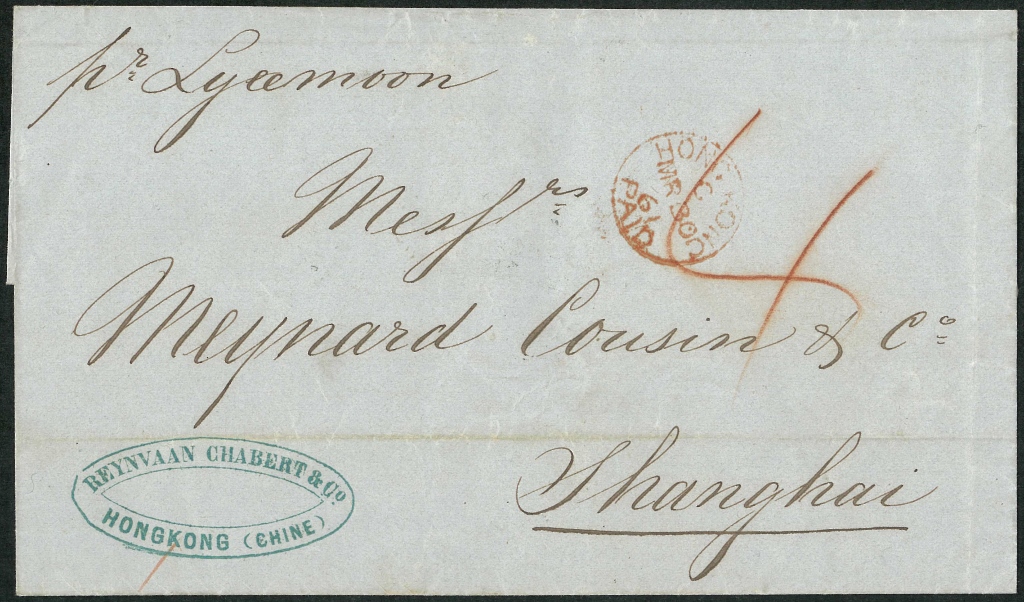 pr Lyeemoon
Messrs
Meynard Cousin & Co
Shanghai
HONG KONG
C
MR 30
61
PAID
4
REYNVAAN CHABERT & Co
HONGKONG (CHINE)